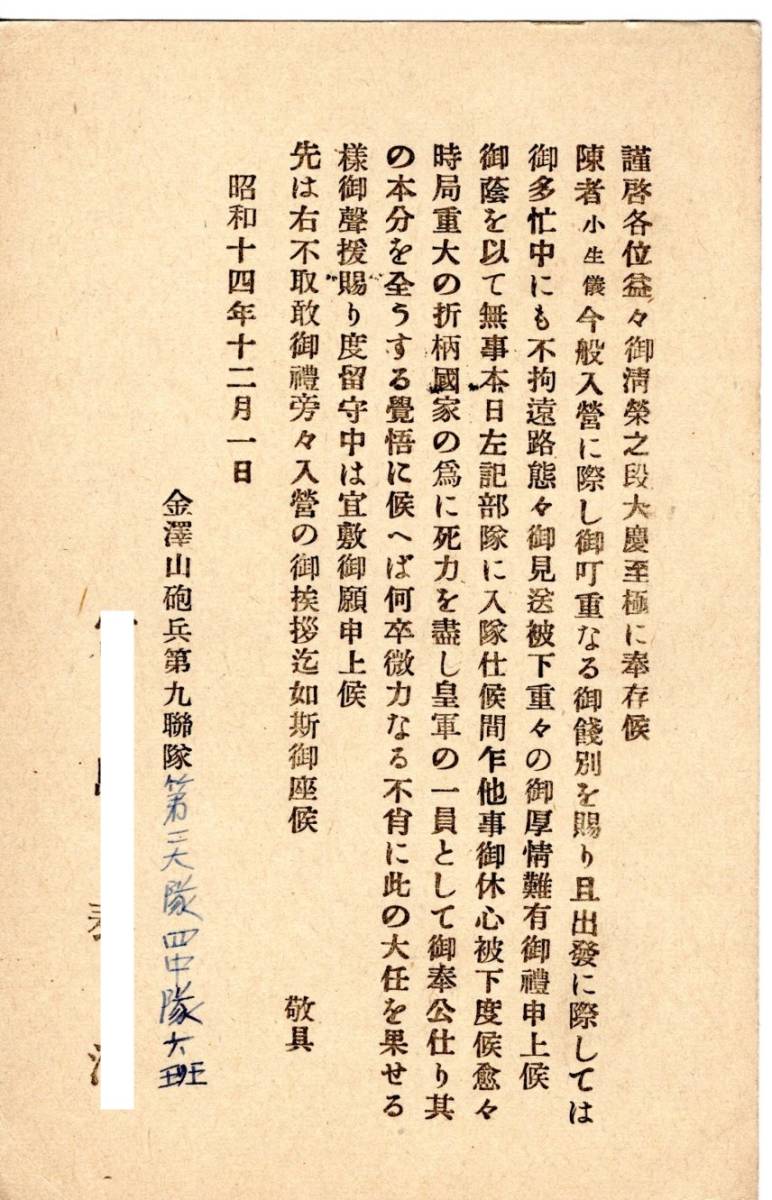 謹啓各位益々御淸榮之段大慶至極に奉存候
陳者小生儀今般入營に際し御叮重なる御餞別を賜り且出發に際しては
御多忙中にも不拘遠路態々御見送被下重々の御厚情難有御禮申上候
御蔭を以て無事本日左記部隊に入隊仕候間乍他事御休心被下度候愈々
時局重大の折柄國家の爲に死力を盡し皇軍の一員として御奉公仕り其
の本分を全うする覺悟に候へば何卒微力なる不肖に此の大任を果せる
樣御聲援賜り度留守中は宜敷御願申上候
先は右不取敢御禮旁々入營の御挨拶迄如斯御座候
敬具
昭和十四年十二月一日
金澤山砲兵第九聯隊第二大隊四中隊六班